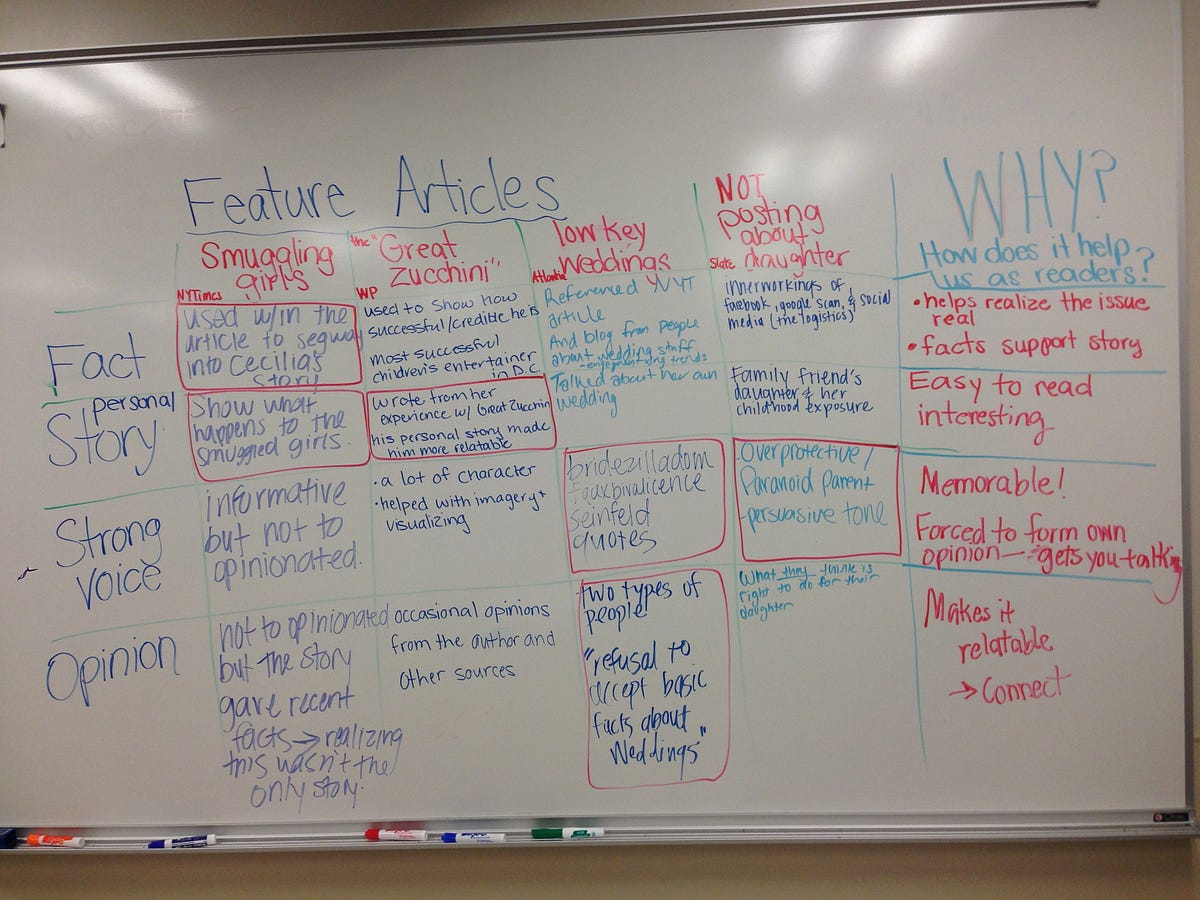 Feature Articles
Smuggling
girls
NYTimes
the "Great
Zucchini"
WP
low key
weddings
Atlantic
NOT
posting
about
daughter
Slate
WHY?
How does it help
us as readers?
Fact
used w/in the
article to segway
into Cecilia's
story
used to show how
successful/credible he is
most successful
children's entertainer
in D.C.
Referenced NYT
article
And blog from people
about wedding stuff
innerworkings of
facebook, google scan, & social
media (the logistics)
•helps realize the issue
real
•facts support story
personal
Story
Show what
happens to the
smuggled girls.
wrote from her
experience w/ Great Zucchini
his personal story made
him more relatable
Talked about her own
wedding
Family friend's
daughter & her
childhood exposure
Easy to read
interesting
Strong
voice
informative
but not to
opinionated.
•a lot of character
•helped with imagery +
visualizing
bridezilladom
fauxbivalicence
seinfeld
quotes
-Overprotective/
Paranoid parent
-persuasive tone
Memorable!
Forced to form own
opinion — gets you talking
Opinion
not to opinionated
but the story
gave recent
facts → realizing
this wasn't the
only story.
occasional opinions
from the author and
other sources
two types of
people
"refusal to
accept basic
facts about
Weddings"
What they think is
right to do for their
daughter
Makes it
relatable
→ Connect